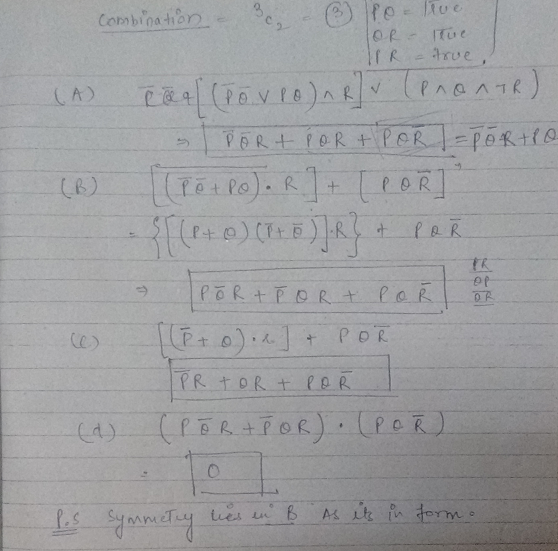 Combination = ³C₂ = ③ | PQ = True
QR = True
PR = True.
(A) P̄Q̄ + [(P̄Q̄ ∨ PQ) ∧ R] ∨ (P ∧ Q ∧ ¬R)
⇒ P̄Q̄R + PQR + PQR̄ = P̄Q̄R + PQ
(B) [(\overline{P̄Q̄ + PQ}) · R] + [PQR̄]
= {[(P+Q)(P̄+Q̄)]·R} + PQR̄
PR
QP
QR
⇒ PQ̄R + P̄QR + PQR̄
(C) [(P̄ + Q)·R] + PQR̄
P̄R + QR + PQR̄
(d) (PQ̄R + P̄QR) · (PQR̄)
= 0
P.S Symmetry lies in B As its in form.